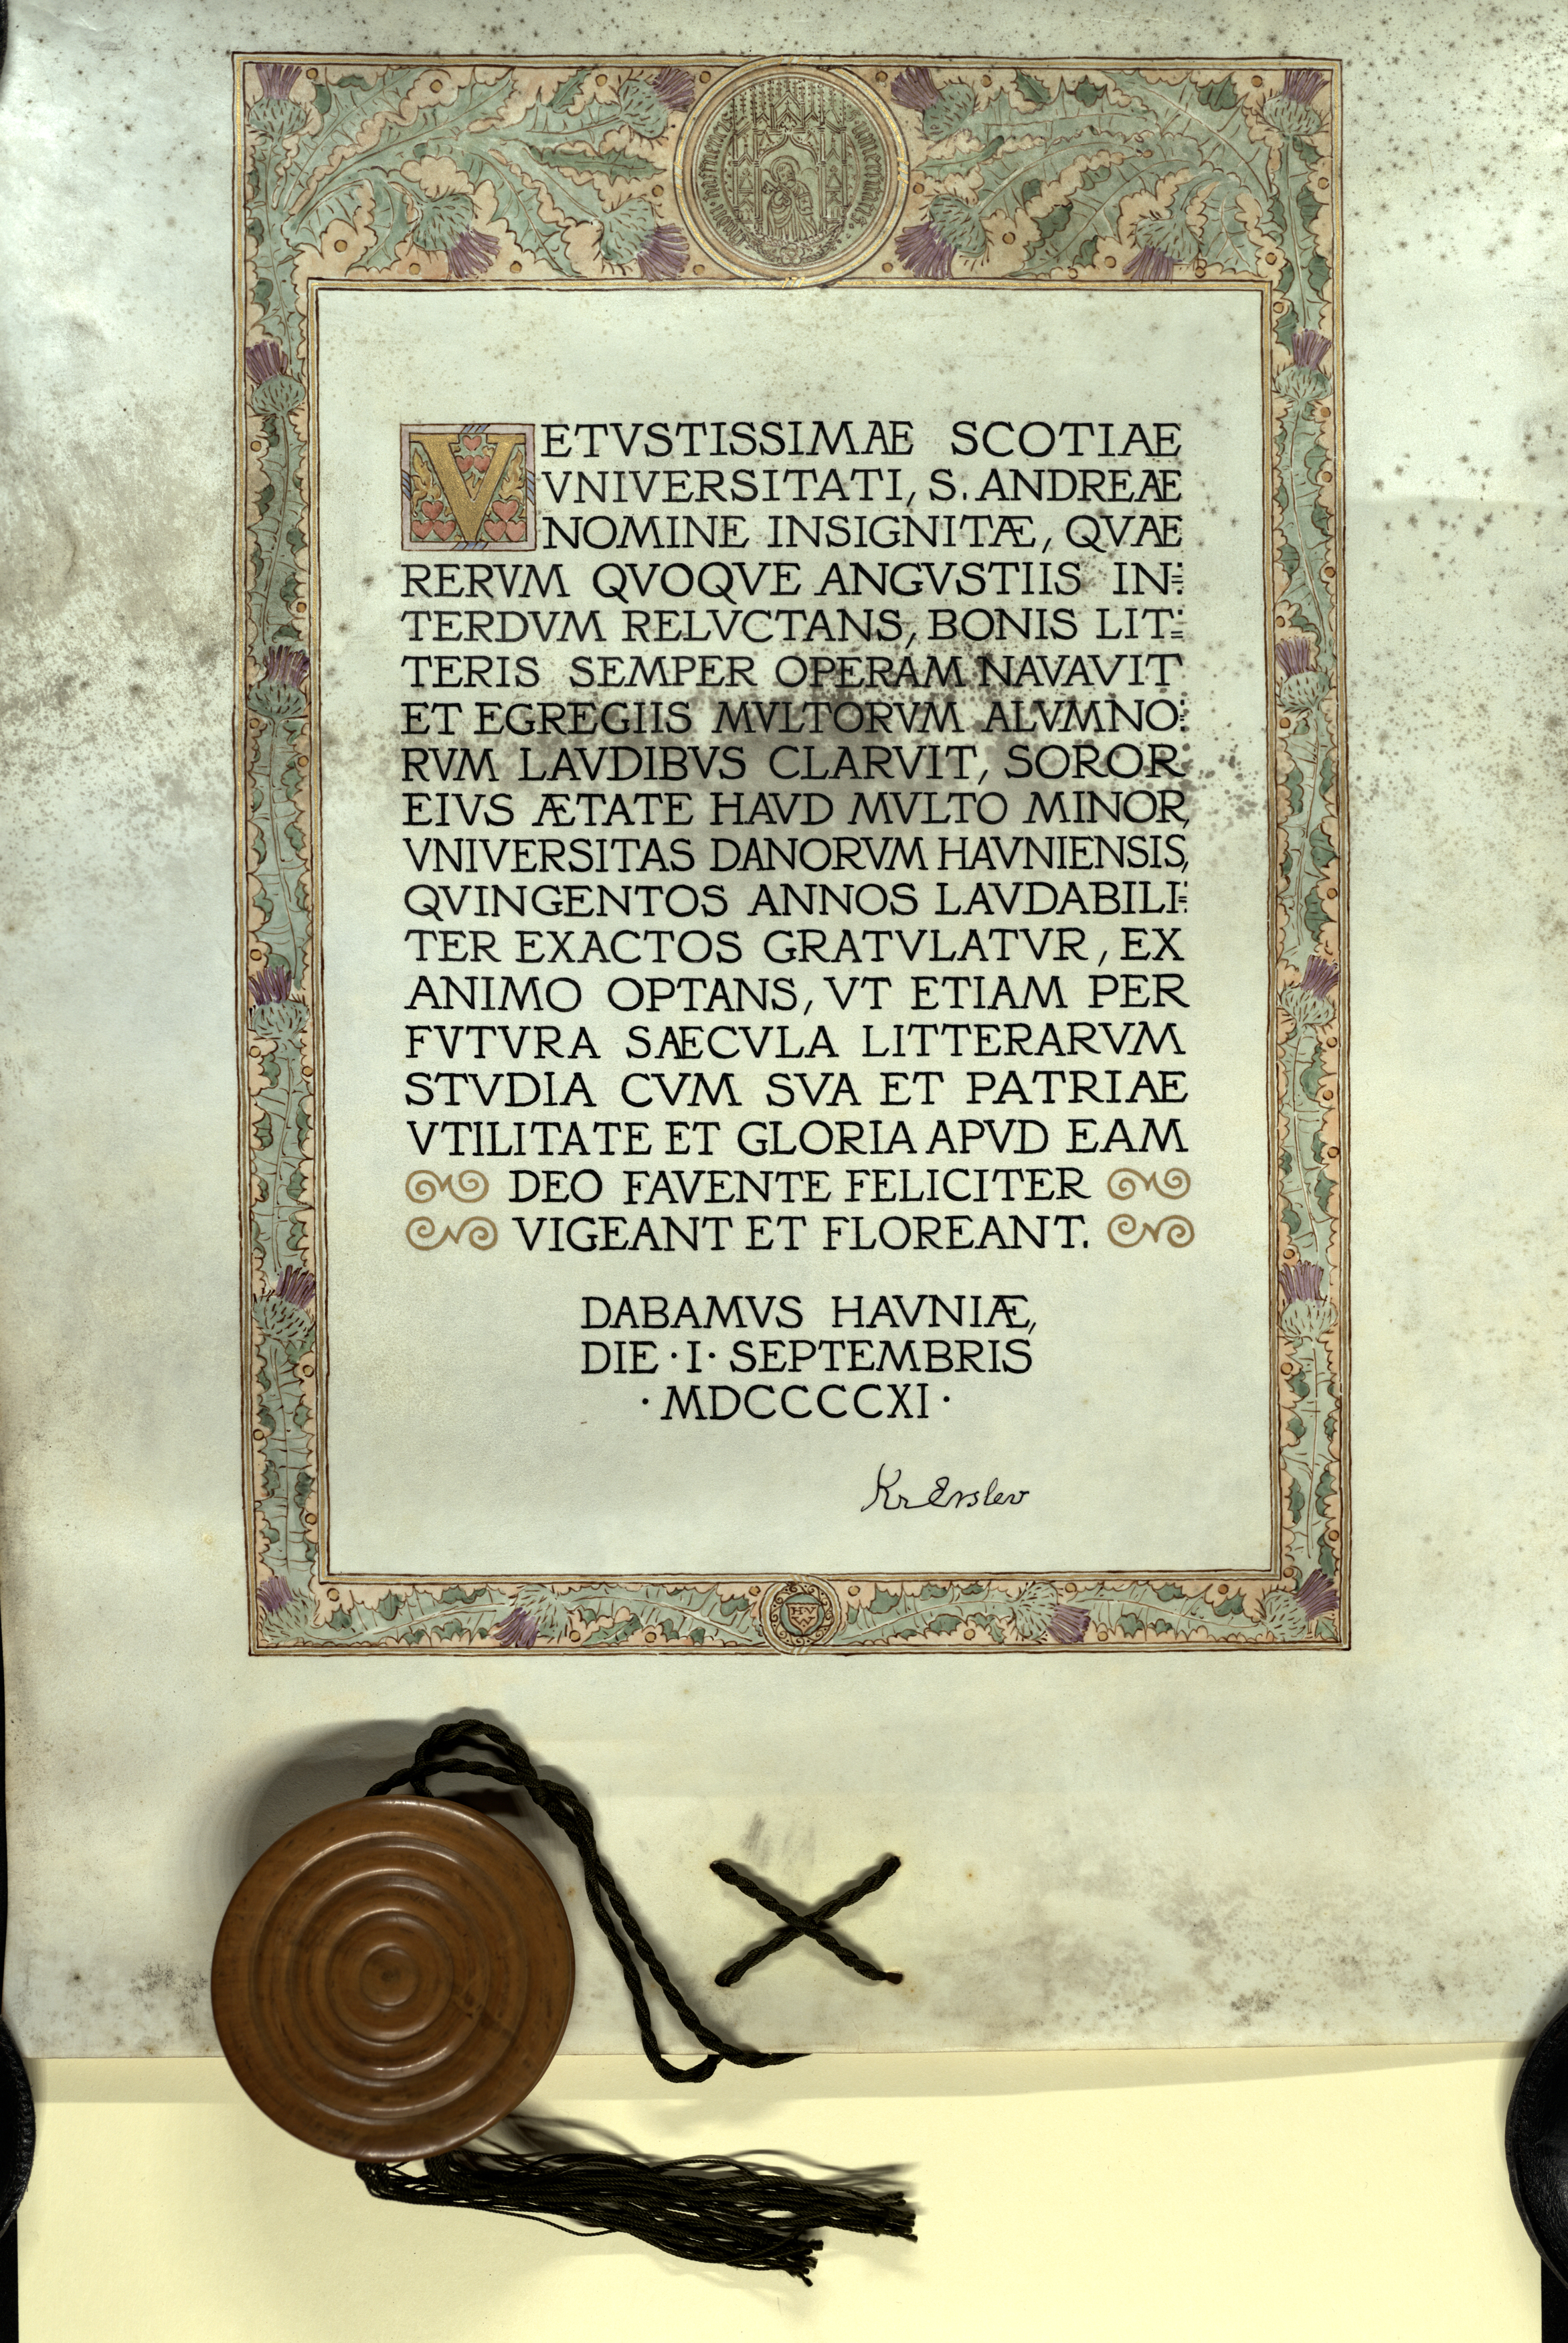 VETVSTISSIMAE SCOTIAE
VNIVERSITATI, S. ANDREAE
NOMINE INSIGNITÆ, QVAE
RERVM QVOQVE ANGVSTIIS IN=
TERDVM RELVCTANS, BONIS LIT=
TERIS SEMPER OPERAM NAVAVIT
ET EGREGIIS MVLTORVM ALVMNO=
RVM LAVDIBVS CLARVIT, SOROR
EIVS ÆTATE HAVD MVLTO MINOR,
VNIVERSITAS DANORVM HAVNIENSIS,
QVINGENTOS ANNOS LAVDABILI=
TER EXACTOS GRATVLATVR, EX
ANIMO OPTANS, VT ETIAM PER
FVTVRA SAECVLA LITTERARVM
STVDIA CVM SVA ET PATRIAE
VTILITATE ET GLORIA APVD EAM
DEO FAVENTE FELICITER
VIGEANT ET FLOREANT.
DABAMVS HAVNIÆ,
DIE · I · SEPTEMBRIS
· MDCCCCXI ·
Kr Erslev